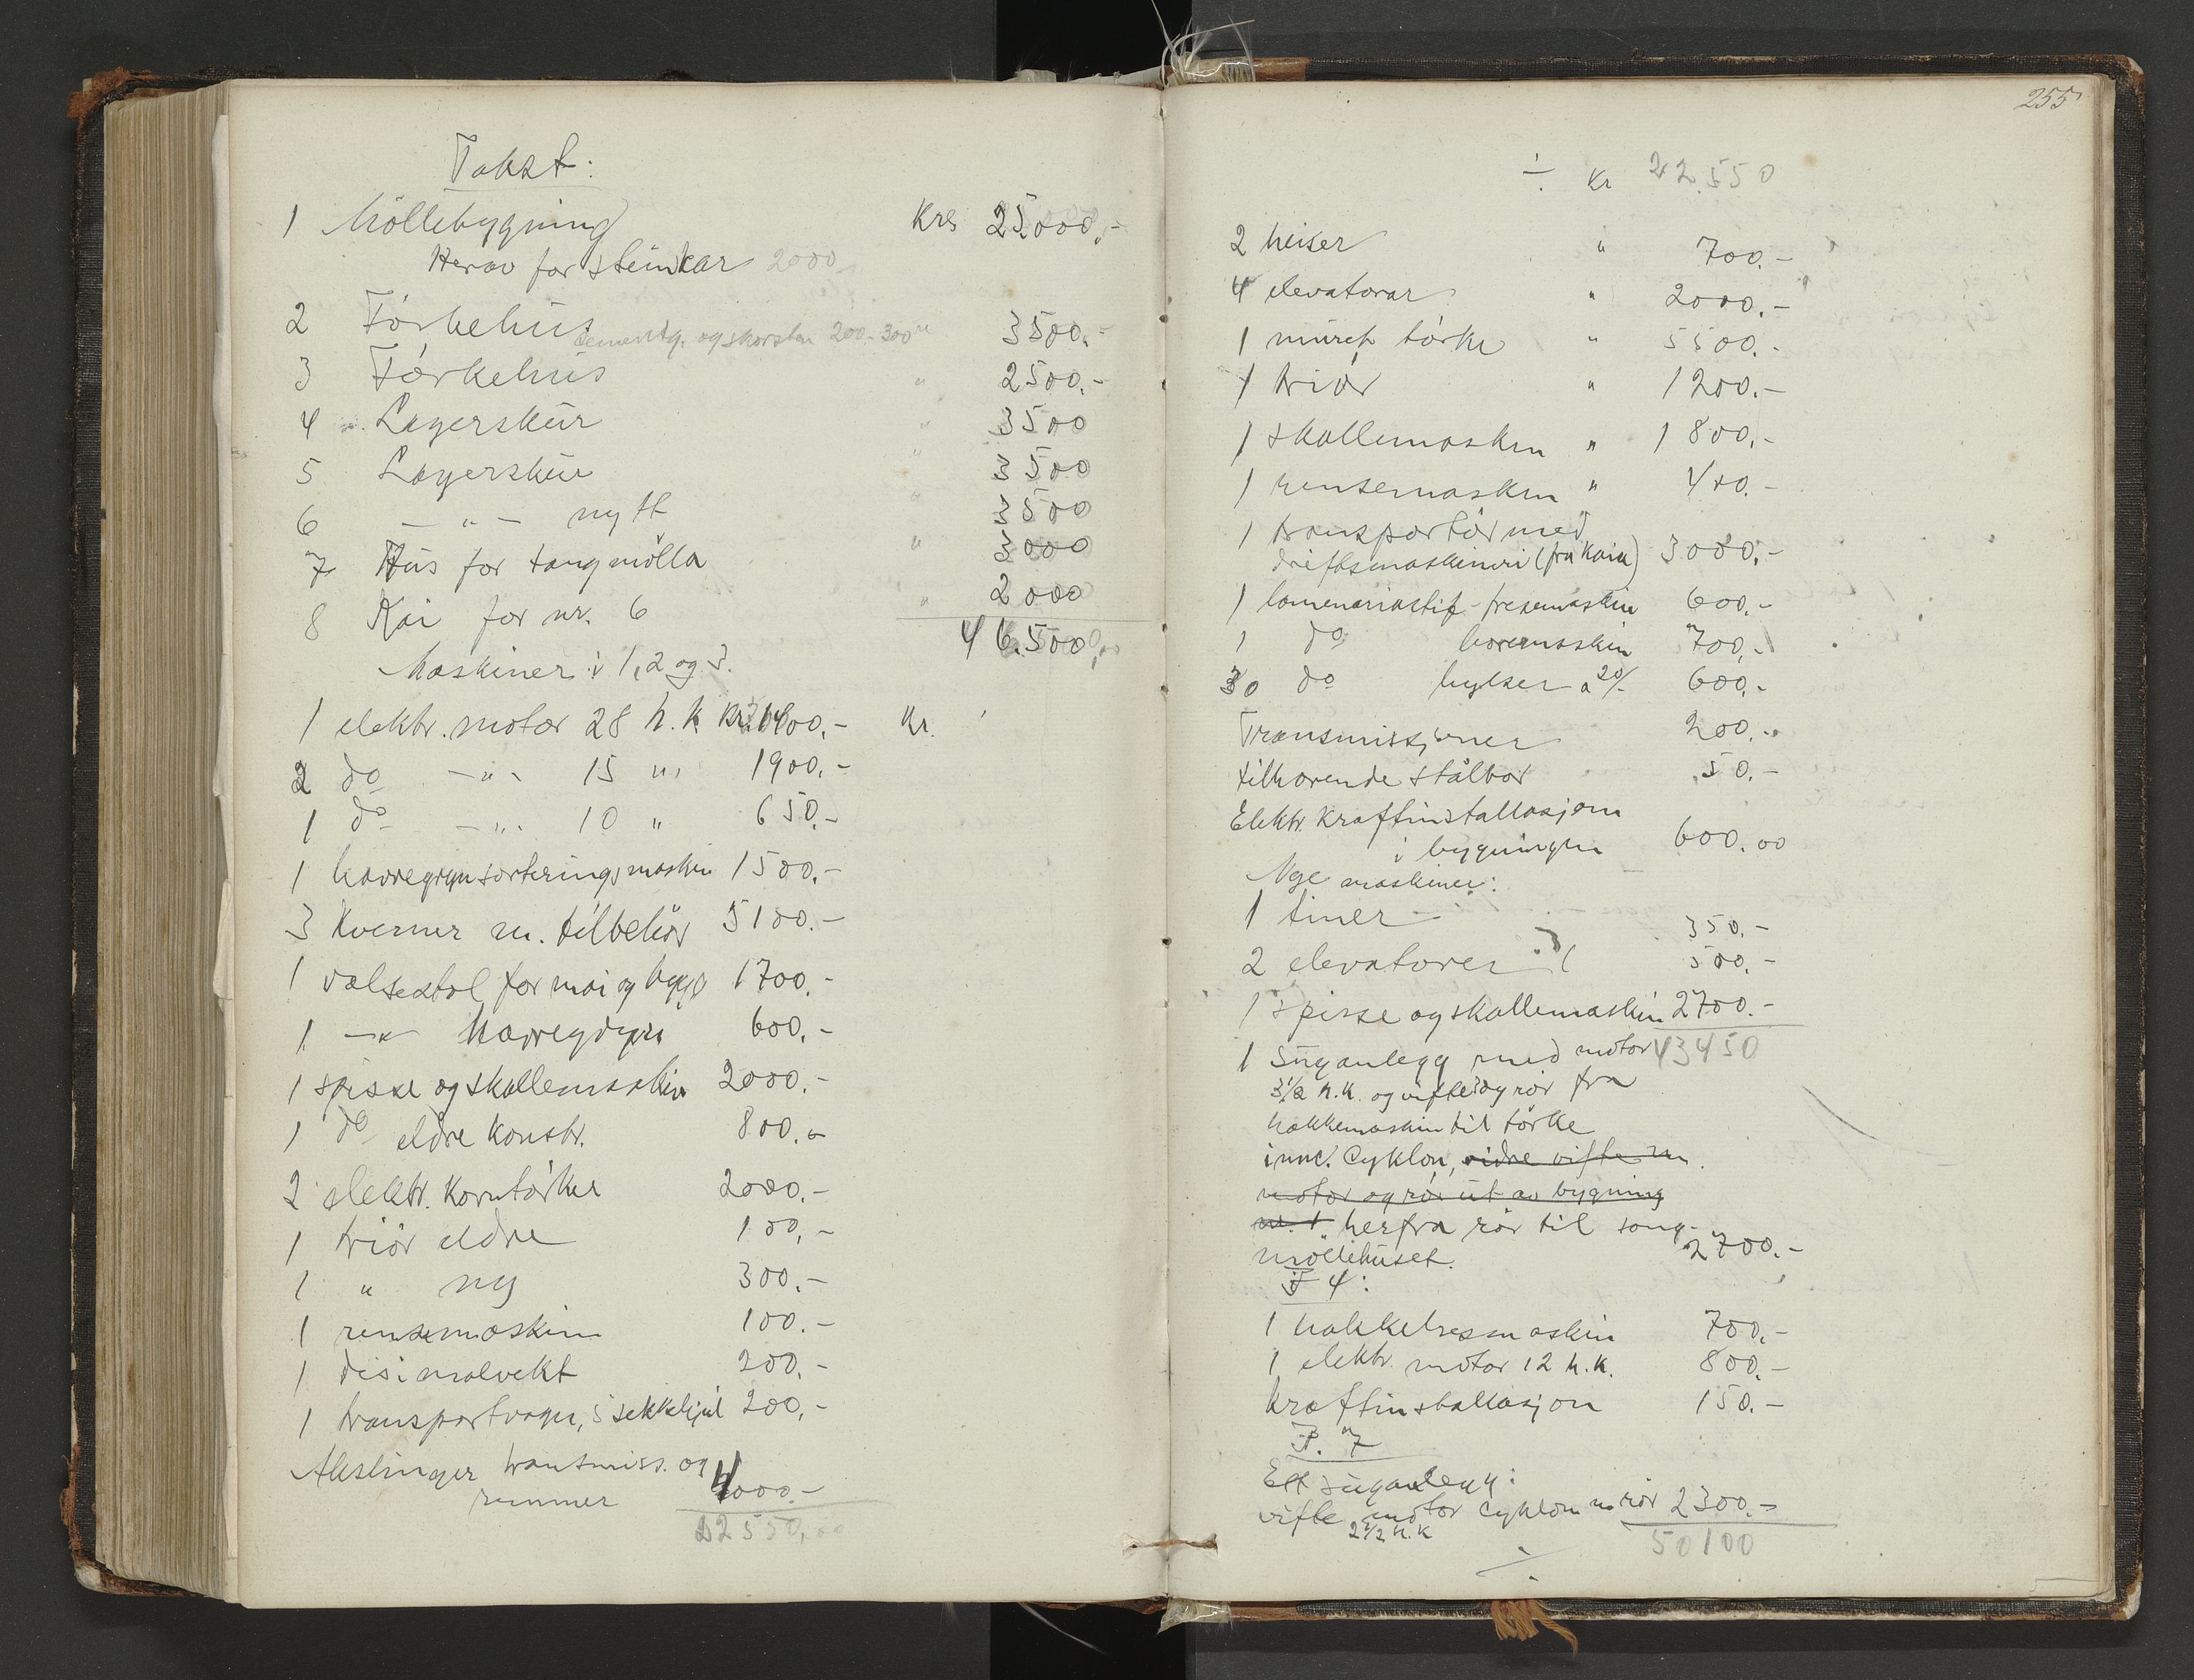 Takst:
1 Möllebygning Kr 25000,-
Herav for steinkar 2000,-
2 Törkehus sementg. og skorstein 200.- 300 3500,-
3 Tørkehus " 2500,-
4 Lagerskur " 3500
5 Lagerskur " 3500
6 - " - nytt " 3500
7 Hus for tangmölla " 3000
8 Kai for nr. 6 " 2000
46.500,00
Maskiner i 1, 2 og 3.
1 elektr. motor 28 h.k. Kr. 1400,- Kr.
2 do - " - 15 " 1900,-
1 do - " - 10 " 650,-
1 havregryn sorteringsmaskin 1500,-
3 Kverner m. tilbehör 5100.-
1 valsestol for mai og bygg 1700,-
1 - " havregryn 600,-
1 spisse og skallemaskin 2000.-
1 do eldre konstr. 800.-
2 elektr. korntörker 2000.-
1 triör eldre 100,-
1 " ny 300.-
1 rensemaskin 100.-
1 desimalvekt 200,-
1 transportvogn, 5 sekkehjul 200,-
Akslinger transmiss. og
remmer 4000.-
22550,00
255
÷ Kr 22.550
2 heiser " 700.-
4 elevatorar " 2000.-
1 " 5500.-
1 triör " 1200.-
1 skallemaskin " 1800.-
1 rensemaskin " 400.-
1 transportör med
driftsmaskineri (fra kaia) 3000.-
1 - fresemaskin 600.-
1 do boremaskin 700,-
30 do hylser a 20/- 600.-
Transmissjoner 200.-
tilhørende stålbor 50.-
Elektr. Kraftinstallasjon
i bygningen 600.00
Nye maskiner:
1 350.-
2 elevatorer 500.-
1 spisse og skallemaskin 2700.-
43450
1 Suganlegg med motor
3½ h.k. og vifte og rör fra
hakkemaskin til törke
innl. Cyklon, vidre vifte m.
motor og rör ut av bygning
nr. 1 herfra rör til tang-
möllehuset. 2700.-
I 4:
1 hakkelsesmaskin 700.-
1 elektr. motor 12 h.k. 800.-
Kraftinstallasjon 150.-
I. 7
Ett suganlegg:
vifte, motor Cyklon m rör 2300.-
2½ h.k
50100
÷